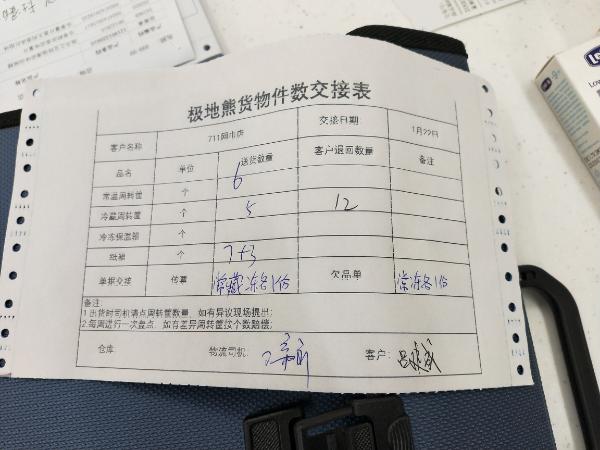 极地熊货物件数交接表
客户名称 711闽市店 交接日期 1月22日
品名 单位 送货数量 客户退回数量 备注
常温周转筐 个 6
冷藏周转筐 个 5 12
冷冻保温箱 个
纸箱 个 7+3
单据交接 传票 常藏冻各1份 欠品单 常冻各1份
备注:
1.出货时司机请点周转筐数量,如有异议现场提出;
2.每周进行一次盘点,如有差异周转筐按个数赔偿;
仓库: 物流司机: 客户: